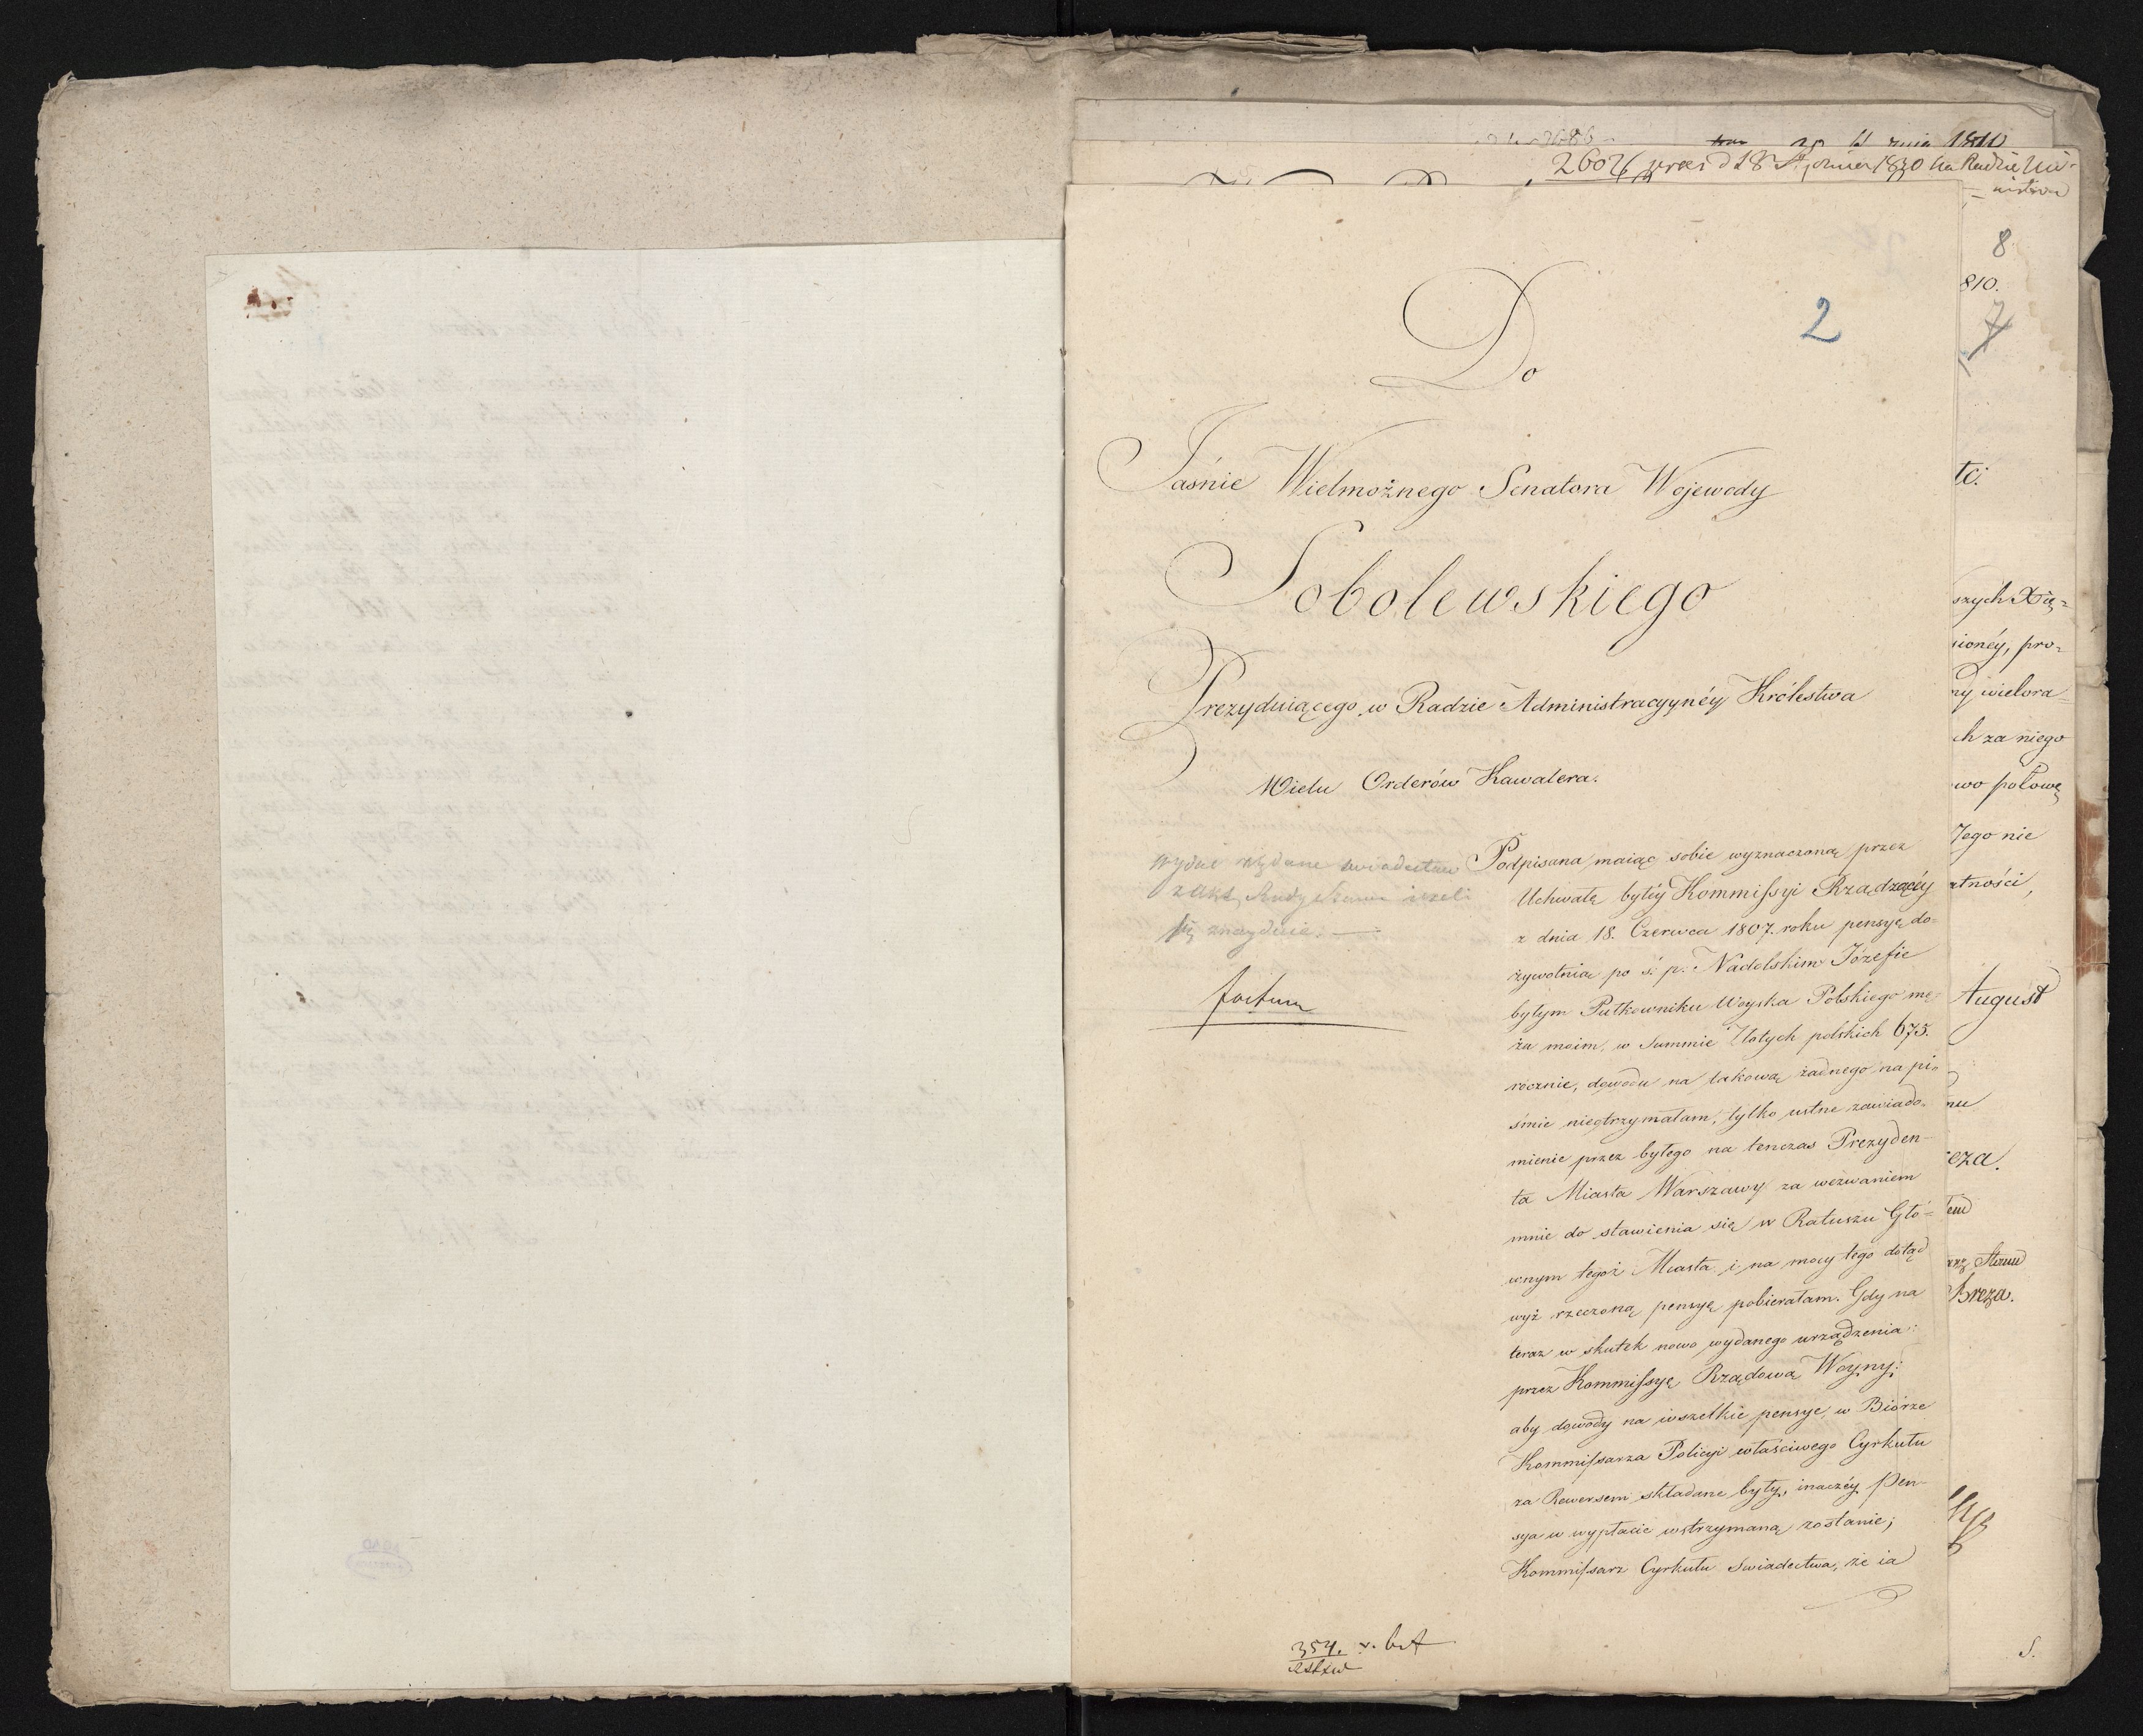 2
Do
Jaśnie Wielmożnego Senatora Wojewody
Sobolewskiego
Prezyduiącego w Radzie Administracyynéy Królestwa
Wielu Orderów Kawalera.
Podpisana maiąc sobie wyznaczoną przez
Uchwałę byłéy Kommissyi Rządzącéy
z dnia 18. Czerwca 1807. roku pensyę do=
żywotnią po ś. p. Nadolskim Józefie
byłym Pułkowniku Woyska Polskiego mę=
żu moim, w Summie Złotych polskich 675.
rocznie, dowodu na takową żadnego na pi=
śmie nieotrzymałam, tylko ustne zawiado=
mienie przez byłego na tenczas Prezyden=
ta Miasta Warszawy za wezwaniem
mnie do stawienia się w Ratuszu Głó=
wnym tegoż Miasta, i na mocy tego dotąd
wyż rzeczoną pensyę pobierałam. Gdy na
teraz w skutek nowo wydanego urządzenia
przez Kommissyę Rządową Woyny;
aby dowody na wszelkie pensye, w Biórze
Kommissarza Policyi właściwego Cyrkułu
za Rewersem składane były, inaczéy Pen=
sya w wypłacie wstrzymaną zostanie;
Kommissarz Cyrkułu Swiadectwa, że ia
wydać żądane swiadectwo
z akt Rady Stanu ieżeli
się znayduie.
factum
354.
26026 1830 na Radzie
1810
8
810.
7
tci.
szych Xię=
sionéy, pro=
ny wielora=
ch za niego
wo połowę
Jego nie
atności,
August
nu
eza.
Stanu
Breza.
S.
AGAD